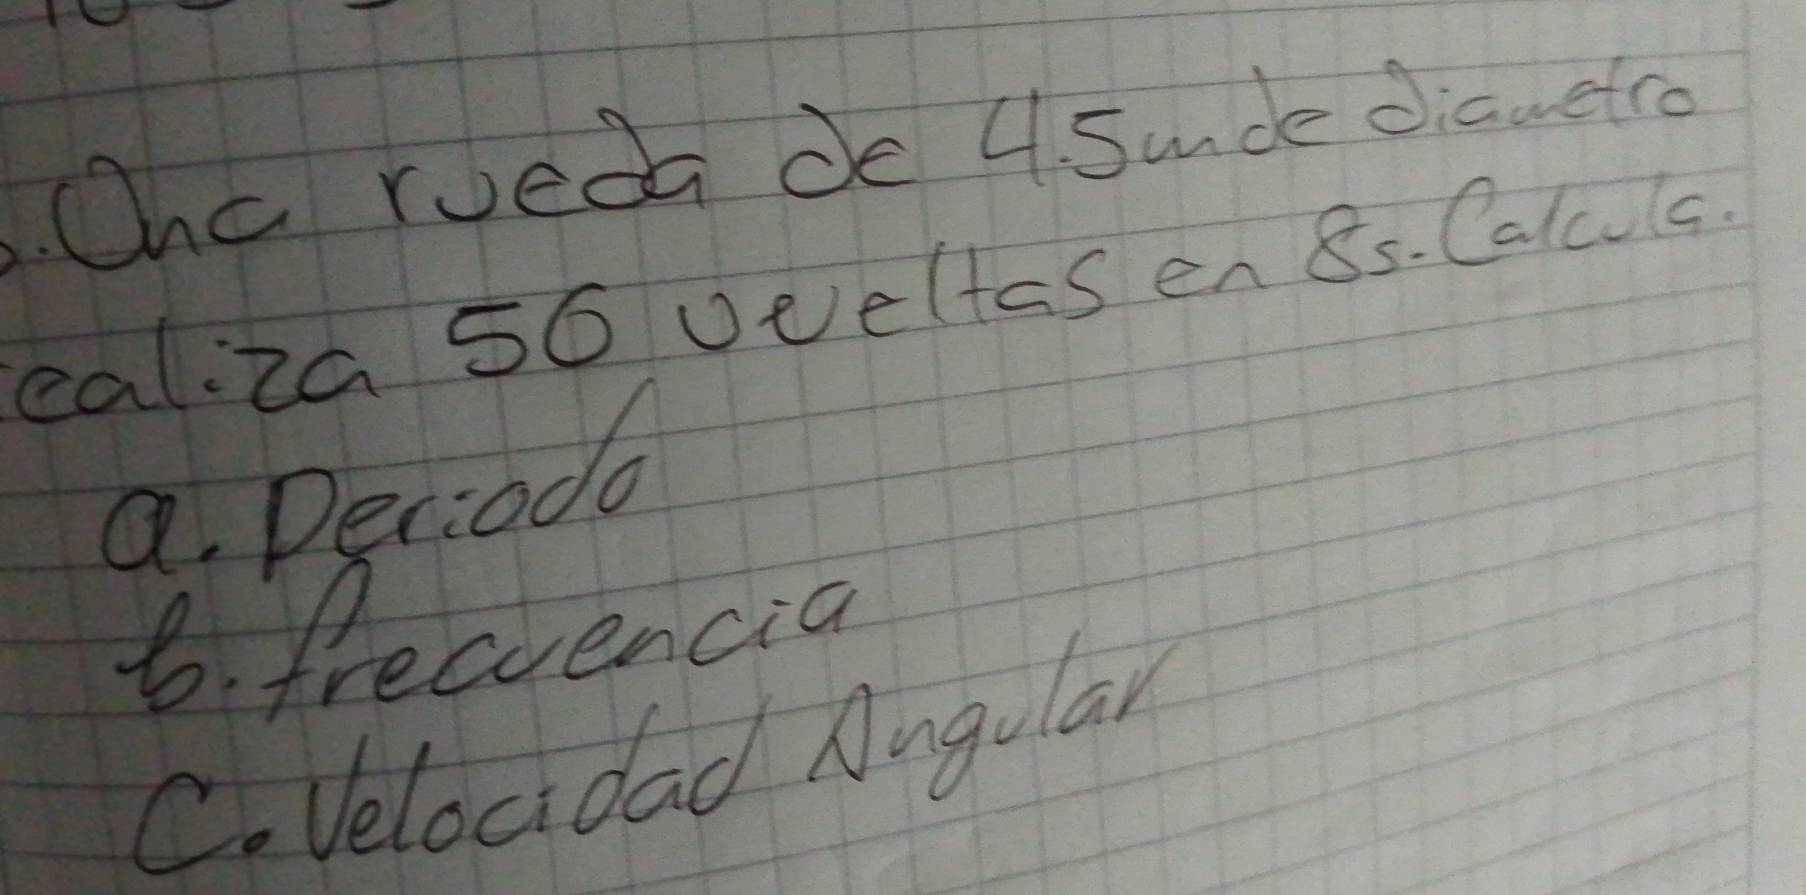 . Una rueda de 4.5m de diametro
realiza 56 vueltas en 8s. Calcula.
a. Periodo
b. frecuencia
C. Velocidad Angular